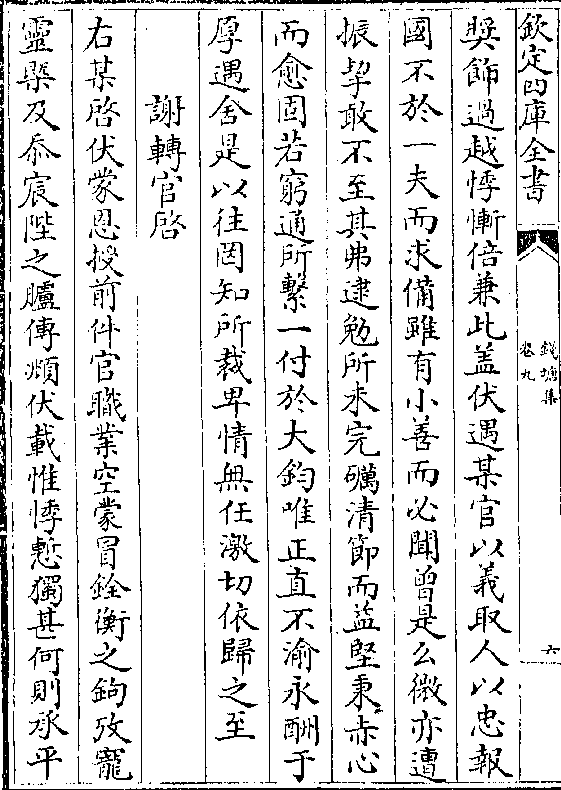 欽定四庫全書
錢塘集
卷九
六
奬飾過越悸慚倍兼此盖伏遇某官以義取人以忠報
國不於一夫而求備雖有小善而必聞曾是么微亦遭
振挈敢不至其弗逮勉所未完礪清節而益堅秉赤心
而愈固若窮通所繫一付於大鈞唯正直不渝永酬于
厚遇舍是以往罔知所裁卑情無任激切依歸之至
謝轉官啓
右某啓伏蒙恩授前件官職業空蒙冒銓衡之鉤攷寵
靈槩及忝宸陛之臚傳頫伏載惟悸慙獨甚何則承平